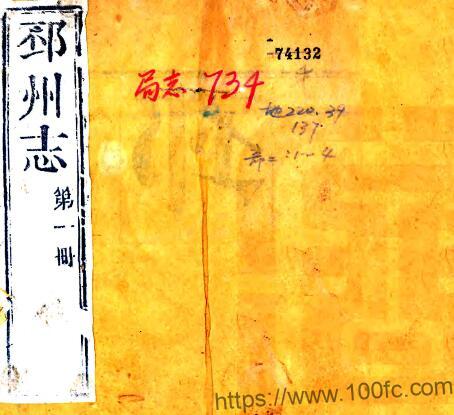 邳州志
第一冊
74132
局志 734
地220.39
137
https://www.100fc.com